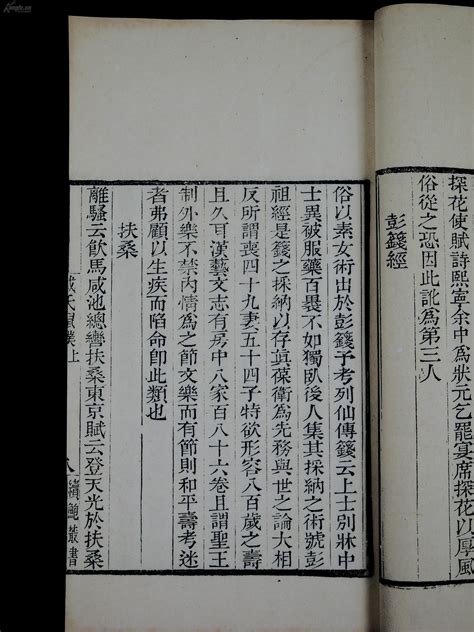 探花使賦詩熙寧余中為狀元乞罷宴席探花以厚風
俗從之恐因此訛為第三人
彭籛經
俗以素女術出於彭籛予考列仙傳籛云上士別牀中
士異被服藥百畏不如獨臥後人集其採納之術號彭
祖經是籛之採納以存眞葆衛為先務與世之論大相
反所謂喪四十九妻五十四子特欲形容八百歲之壽
且久耳漢藝文志有房中八家百八十六卷且謂聖王
制外樂不禁內情為之節文樂而有節則和平壽考迷
者弗顧以生疾而陷命卽此類也
扶桑
離騷云飲馬咸池總轡扶桑東京賦云登天光於扶桑
戚氏鼠璞上
八
續鮑叢書